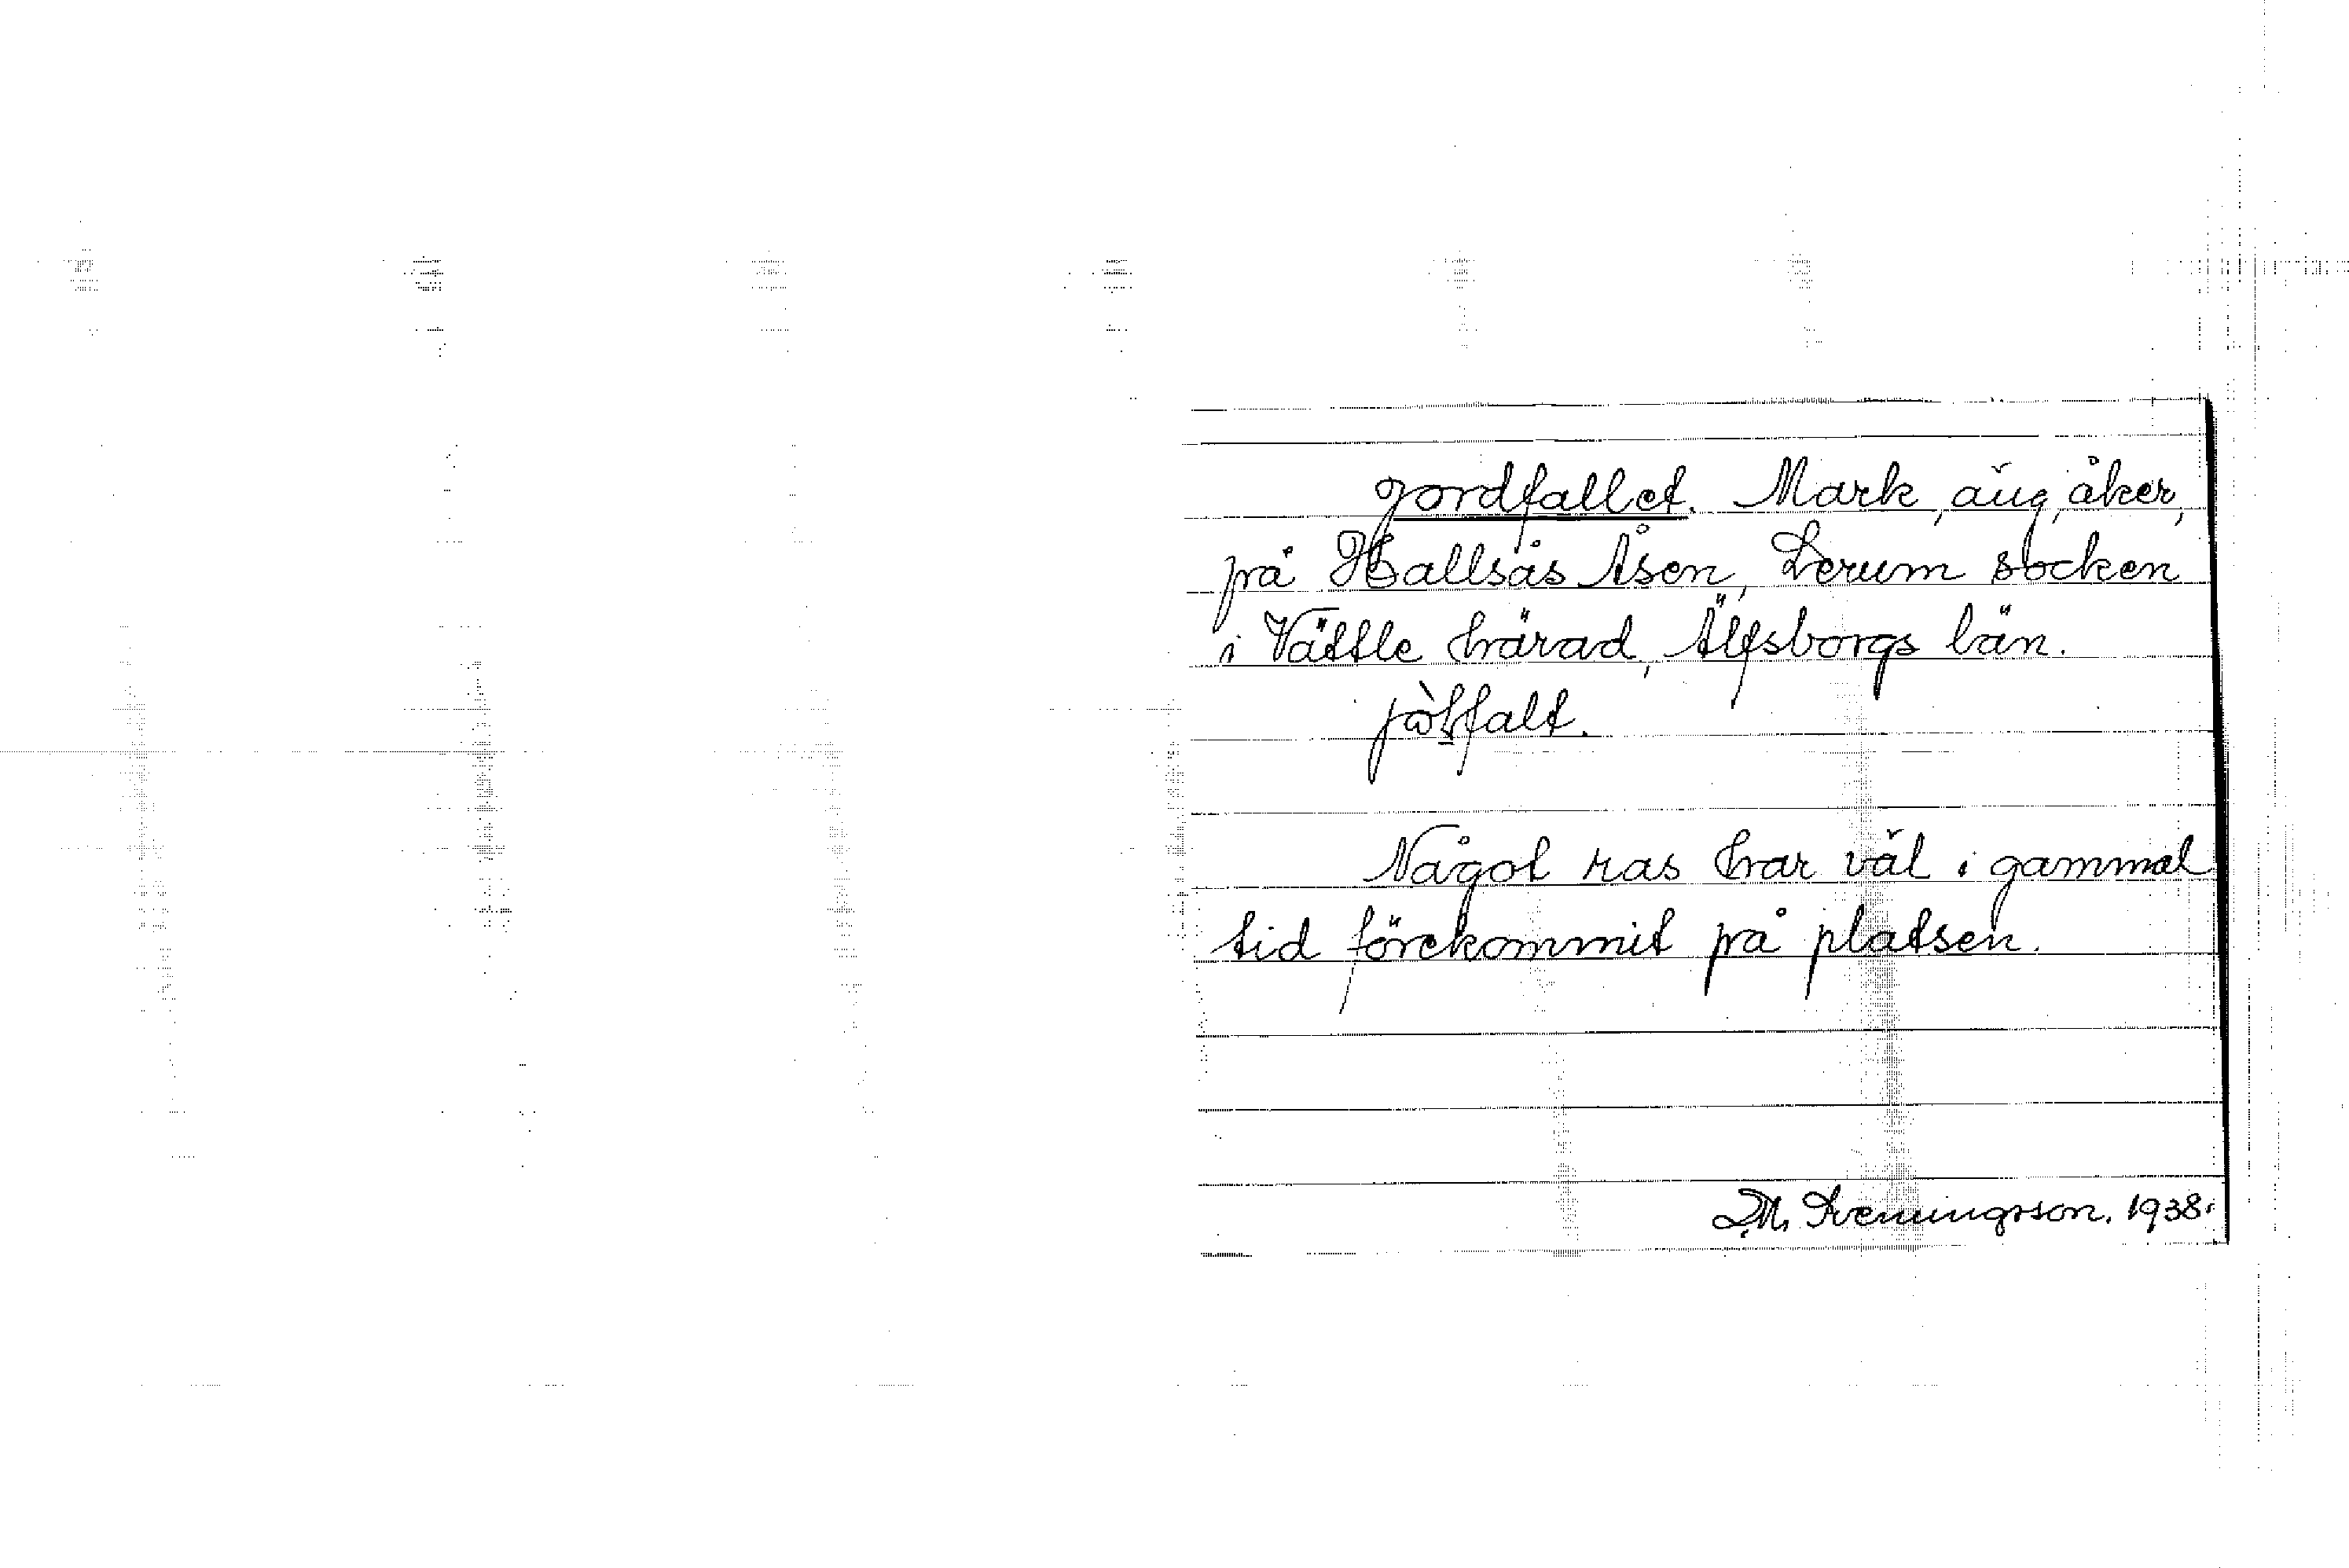 Jordfallet. Mark, äng, åker,
på Hallsås Åsen, Lerum socken
i Vättle härad, Älfsborgs län.
Något ras har väl i gammal
tid förekommit på platsen.
D.N. Sveningsson. 1938.